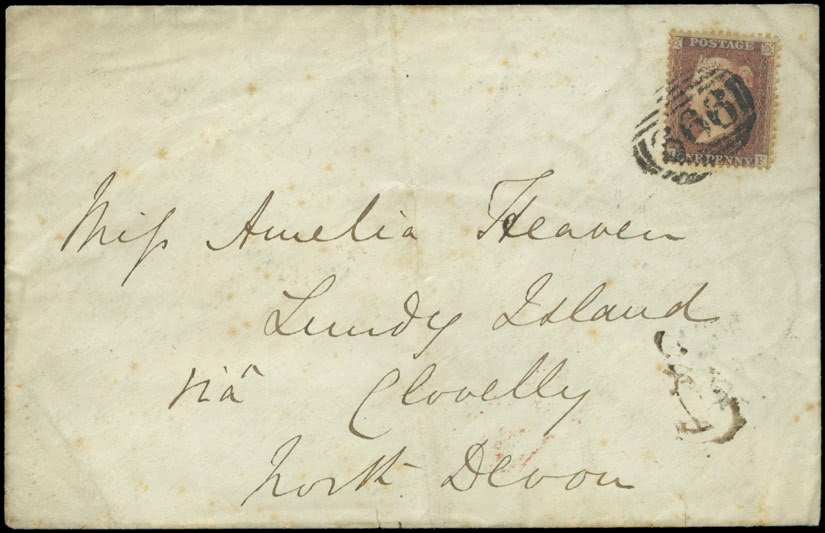 POSTAGE
Miſs Amelia Heaven
Lundy Island
viâ Clovelly
North Devon